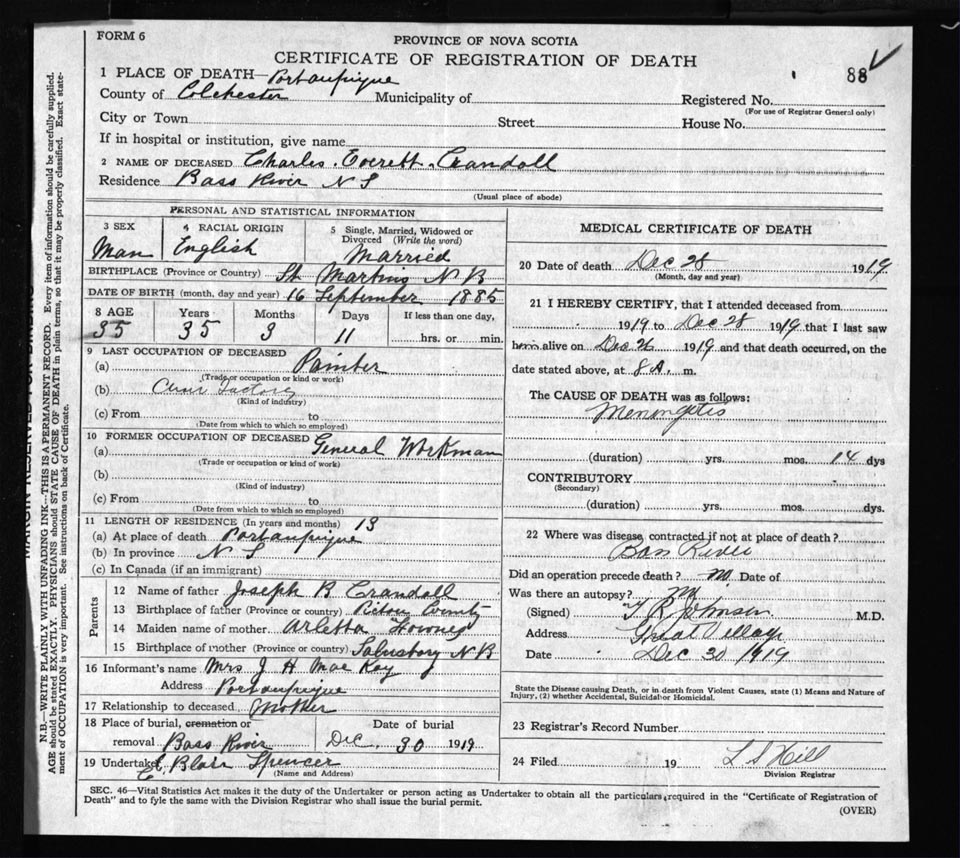 FORM 6
PROVINCE OF NOVA SCOTIA
CERTIFICATE OF REGISTRATION OF DEATH
88
1 PLACE OF DEATH—Portaupique
County of Colchester Municipality of Registered No.
(For use of Registrar General only)
City or Town Street House No.
If in hospital or institution, give name
2 NAME OF DECEASED Charles Everett Crandall
Residence Bass River N S
(Usual place of abode)
PERSONAL AND STATISTICAL INFORMATION
3 SEX
Man
4 RACIAL ORIGIN
English
5 Single, Married, Widowed or Divorced (Write the word)
Married
BIRTHPLACE (Province or Country) St Martins N B
DATE OF BIRTH (month, day and year) 16 September 1885
8 AGE Years Months Days If less than one day,
35 35 3 11 hrs. or min.
9 LAST OCCUPATION OF DECEASED
(a) Painter
(Trade or occupation or kind or work)
(b) Chair Factory
(Kind of industry)
(c) From to
(Date from which to which so employed)
10 FORMER OCCUPATION OF DECEASED
(a) General Workman
(Trade or occupation or kind of work)
(b)
(Kind of industry)
(c) From to
(Date from which to which so employed)
11 LENGTH OF RESIDENCE (In years and months) 13
(a) At place of death Portaupique
(b) In province N S
(c) In Canada (if an immigrant)
Parents
12 Name of father Joseph B Crandall
13 Birthplace of father (Province or country) Pictou County
14 Maiden name of mother Arletta Townes
15 Birthplace of mother (Province or country) Salusbory N B
16 Informant's name Mrs J H Mac Kay
Address Portaupique
17 Relationship to deceased Mother
18 Place of burial, cremation or removal Bass River
Date of burial
Dec. 30 1919
19 Undertaker Blair Spencer
(Name and Address)
MEDICAL CERTIFICATE OF DEATH
20 Date of death Dec 28 1919
(Month, day and year)
21 I HEREBY CERTIFY, that I attended deceased from
1919 to Dec 28 1919 that I last saw
him alive on Dec 26 1919 and that death occurred, on the
date stated above, at 8 A. m.
The CAUSE OF DEATH was as follows:
Meningetis
(duration) yrs. mos. 14 dys
CONTRIBUTORY
(Secondary)
(duration) yrs. mos. dys.
22 Where was disease contracted if not at place of death?
Bass River
Did an operation precede death? no Date of
Was there an autopsy? no
(Signed) T R Johnson M.D.
Address Great Village
Date Dec 30 1919
State the Disease causing Death, or in death from Violent Causes, state (1) Means and Nature of
Injury, (2) whether Accidental, Suicidal or Homicidal.
23 Registrar's Record Number
24 Filed 19 L S Hill
Division Registrar
SEC. 46—Vital Statistics Act makes it the duty of the Undertaker or person acting as Undertaker to obtain all the particulars required in the "Certificate of Registration of
Death" and to fyle the same with the Division Registrar who shall issue the burial permit.
(OVER)
N.B.—WRITE PLAINLY WITH UNFADING INK—THIS IS A PERMANENT RECORD. Every item of information should be carefully supplied.
AGE should be stated EXACTLY. PHYSICIANS should STATE CAUSE OF DEATH in plain terms, so that it may be properly classified. Exact state-
ment of OCCUPATION is very important. See instructions on back of Certificate.